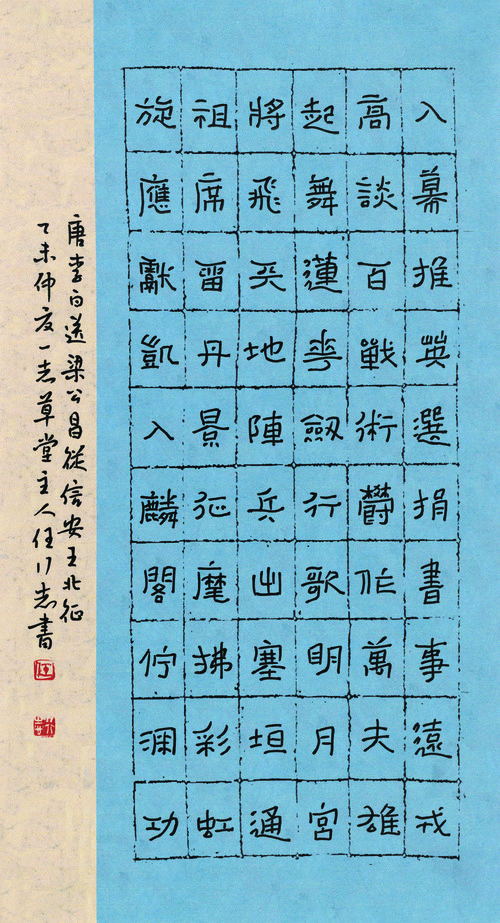 入幕推英選捐書事遠戎
高談百戰術欝作萬夫雄
起舞蓮華劔行歌明月宮
將飛天地陣兵出塞垣通
祖席畱丹景征麾拂彩虹
旋應獻凱入麟閣佇渊功
唐李白送梁公昌從信安王北征
乙未仲夏一志草堂主人任行志書